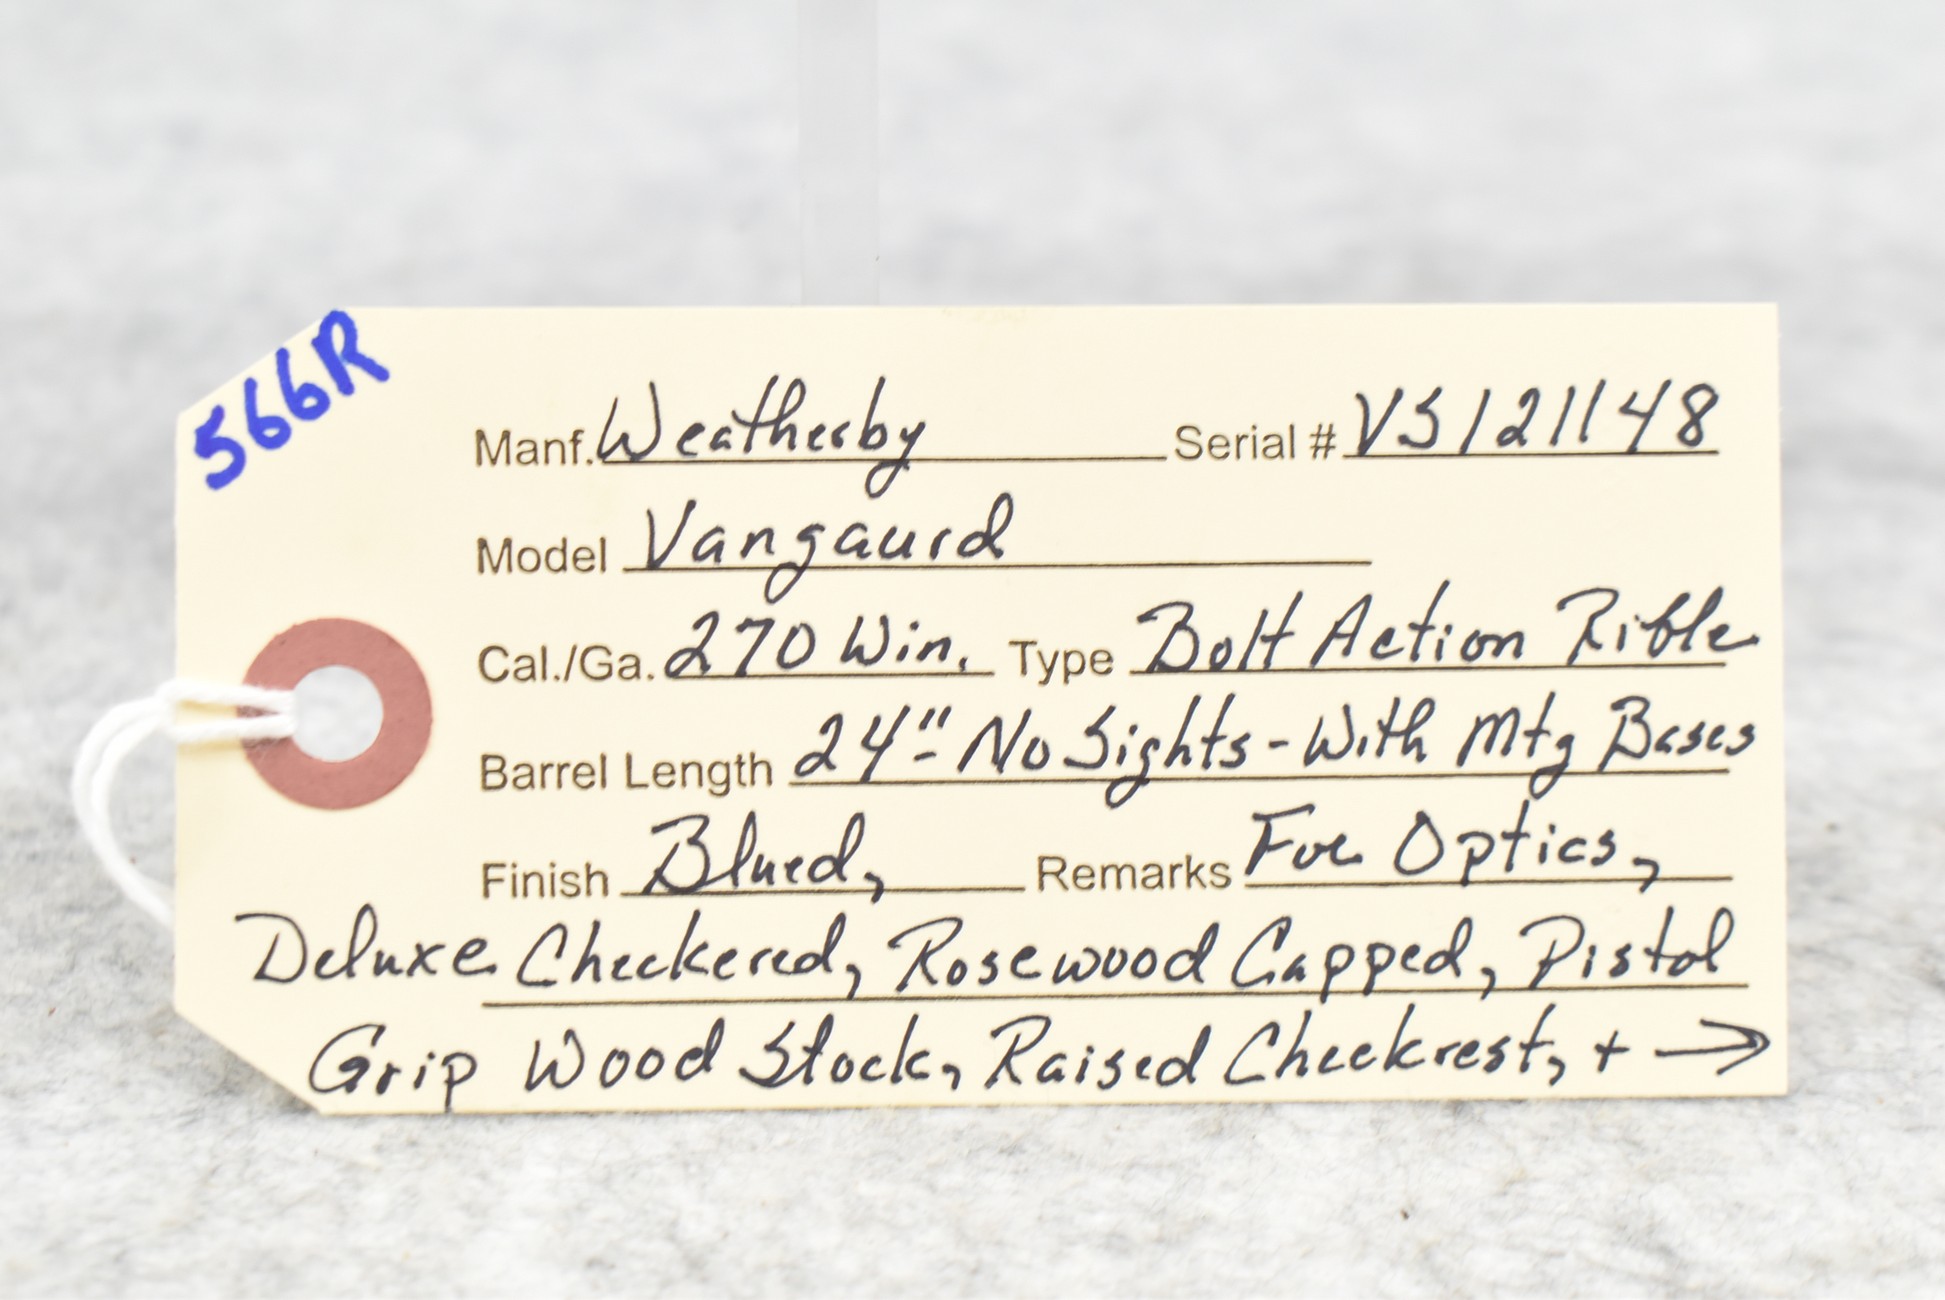 566R
Manf. Weatherby Serial # VS121148
Model Vangaurd
Cal./Ga. 270 Win. Type Bolt Action Rifle
Barrel Length 24" - No Sights - With Mtg Bases
Finish Blued, Remarks For Optics,
Deluxe Checkered, Rosewood Capped, Pistol
Grip Wood Stock, Raised Cheekrest, + →